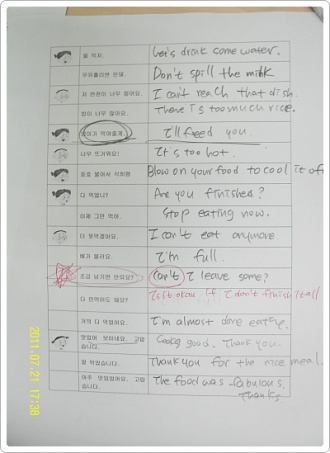 물 먹자.
Let's drink some water.
우유흘리면 안돼.
Don't spill the milk
저 반찬이 너무 멀어요.
I can't reach that dish
밥이 너무 많아요.
There is too much rice.
엄마가 먹여줄게
I'll feed you.
너무 뜨거워요!
It's too hot.
호호 불어서 식혀봐
Blow on your food to cool it off
다 먹었니?
Are you finished?
이제 그만 먹어.
Stop eating now.
더 못먹겠어요.
I can't eat anymore.
배가 불러요.
I'm full.
조금 남기면 안되요?
Can't I leave some?
다 안먹어도 돼요?
Is it okay if I don't finish it all
거의 다 먹었어요.
I'm almost done eating.
맛있어 보이네요. 고맙습니다.
Looks good. Thank you.
잘 먹었습니다.
Thank you for the nice meal.
아주 맛있었어요. 고맙습니다.
The food was fabulous.
Thanks
2011.07.21 17:38